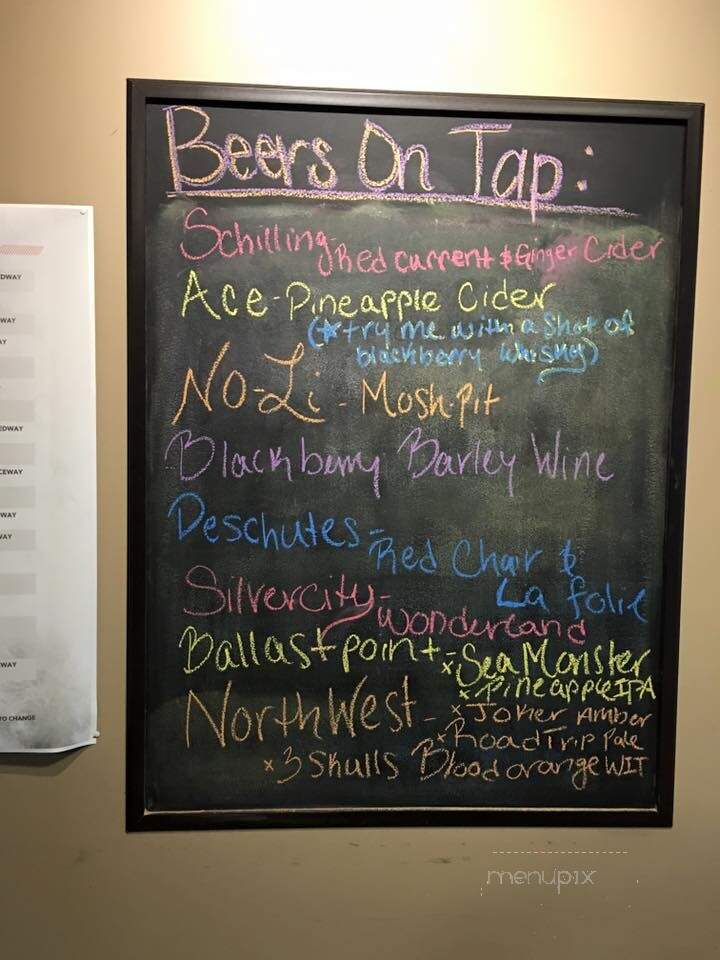 Beers On Tap:
Schilling-Red current & Ginger Cider
Ace-Pineapple Cider
(★try me with a shot of
blackberry whisky)
No-Li - Mosh-Pit
Blackberry Barley Wine
Deschutes-Red Chair &
La folie
Silvercity-Wonderland
Ballast point-xSea Monster
xPineapple IPA
NorthWest-xJoker Amber
xRoad Trip Pale
x3 Skulls Blood orange WIT
DWAY
WAY
AY
EDWAY
CEWAY
WAY
WAY
WAY
TO CHANGE
menupix